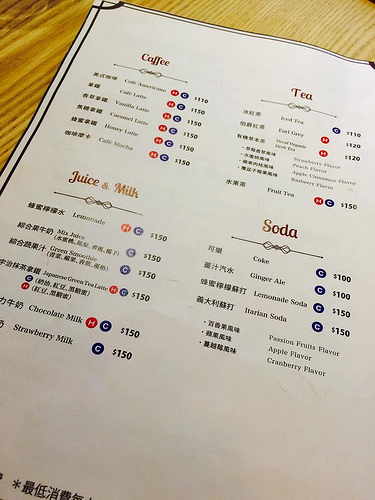 Caffee
美式咖啡 Café Americano H C $110
拿鐵 Café Latte H C $150
香草拿鐵 Vanilla Latte H C $150
焦糖拿鐵 Caramel Latte H C $150
蜂蜜拿鐵 Honey Latte H C $150
咖啡摩卡 Café Mocha H C $150
Tea
冰紅茶 Iced Tea C $110
伯爵紅茶 Earl Grey H $120
有機草本茶 Decaf Organic Herb Tea H $120
・草莓香草風味 Strawberry Flavor
・水蜜桃風味 Peach Flavor
・蘋果肉桂風味 Apple Cinnamon Flavor
・覆盆子莓果風味 Rasberry Flavor
水果茶 Fruit Tea H C $150
Juice & Milk
蜂蜜檸檬水 Lemonade H C $150
綜合果牛奶 Mix Juice C $150
綜合蔬果汁 Green Smoothie C $150
宇治抹茶拿鐵 Japanese Green Tea Latte H C $150
C (奶油,紅豆,黑糖蜜)
H (紅豆,黑糖蜜)
力牛奶 Chocolate Milk H C $150
奶 Strawberry Milk C $150
Soda
可樂 Coke C $100
薑汁汽水 Ginger Ale C $100
蜂蜜檸檬蘇打 Lemonade Soda C $150
義大利蘇打 Itarian Soda C $150
・百香果風味 Passion Fruits Flavor
・蘋果風味 Apple Flavor
・蔓越莓風味 Cranberry Flavor
＊最低消費每